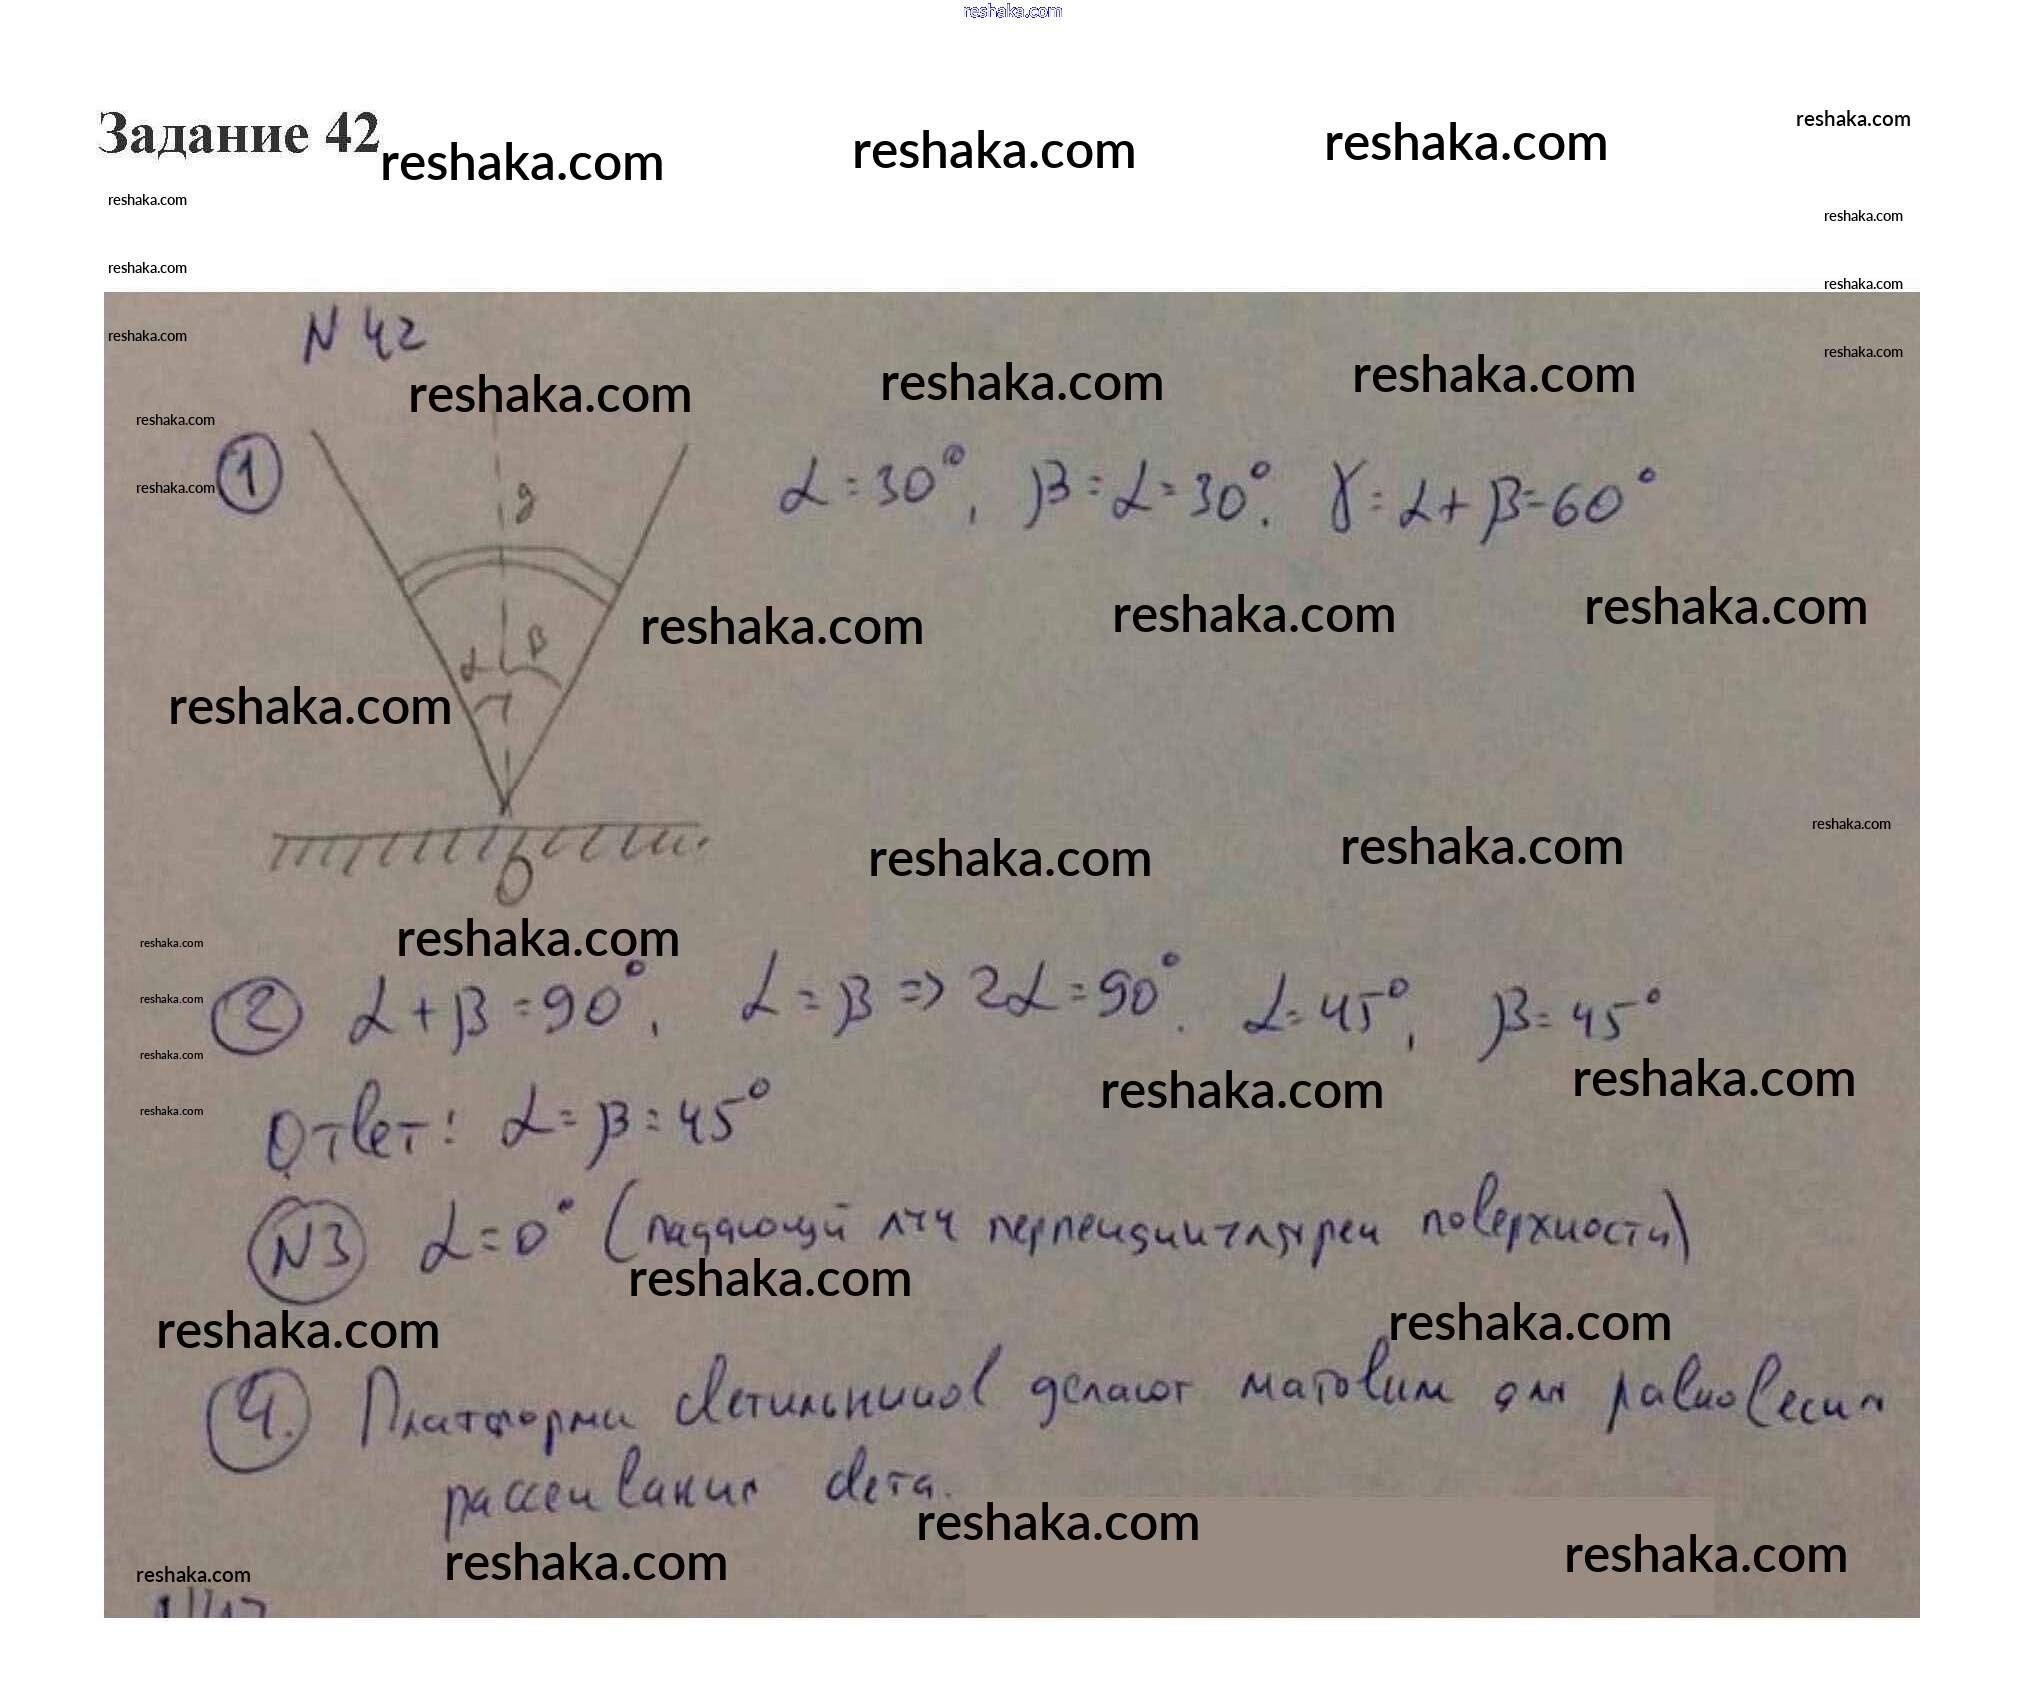 reshaka.com
Задание 42
reshaka.com reshaka.com reshaka.com reshaka.com
reshaka.com reshaka.com
reshaka.com reshaka.com
N 42
reshaka.com reshaka.com
reshaka.com reshaka.com reshaka.com
reshaka.com
reshaka.com
1 α = 30°, β = α = 30°. γ = α + β = 60°
α β
reshaka.com reshaka.com reshaka.com
reshaka.com
reshaka.com reshaka.com reshaka.com
O
reshaka.com
reshaka.com
2 α + β = 90°, α = β => 2α = 90°. α = 45°, β = 45°
reshaka.com
reshaka.com
reshaka.com reshaka.com
reshaka.com
Ответ: α = β = 45°
N3 α = 0° (падающий луч перпендикулярен поверхности)
reshaka.com
reshaka.com reshaka.com
4. светильников делают матовыми для
рассеивания света.
reshaka.com
reshaka.com reshaka.com
reshaka.com